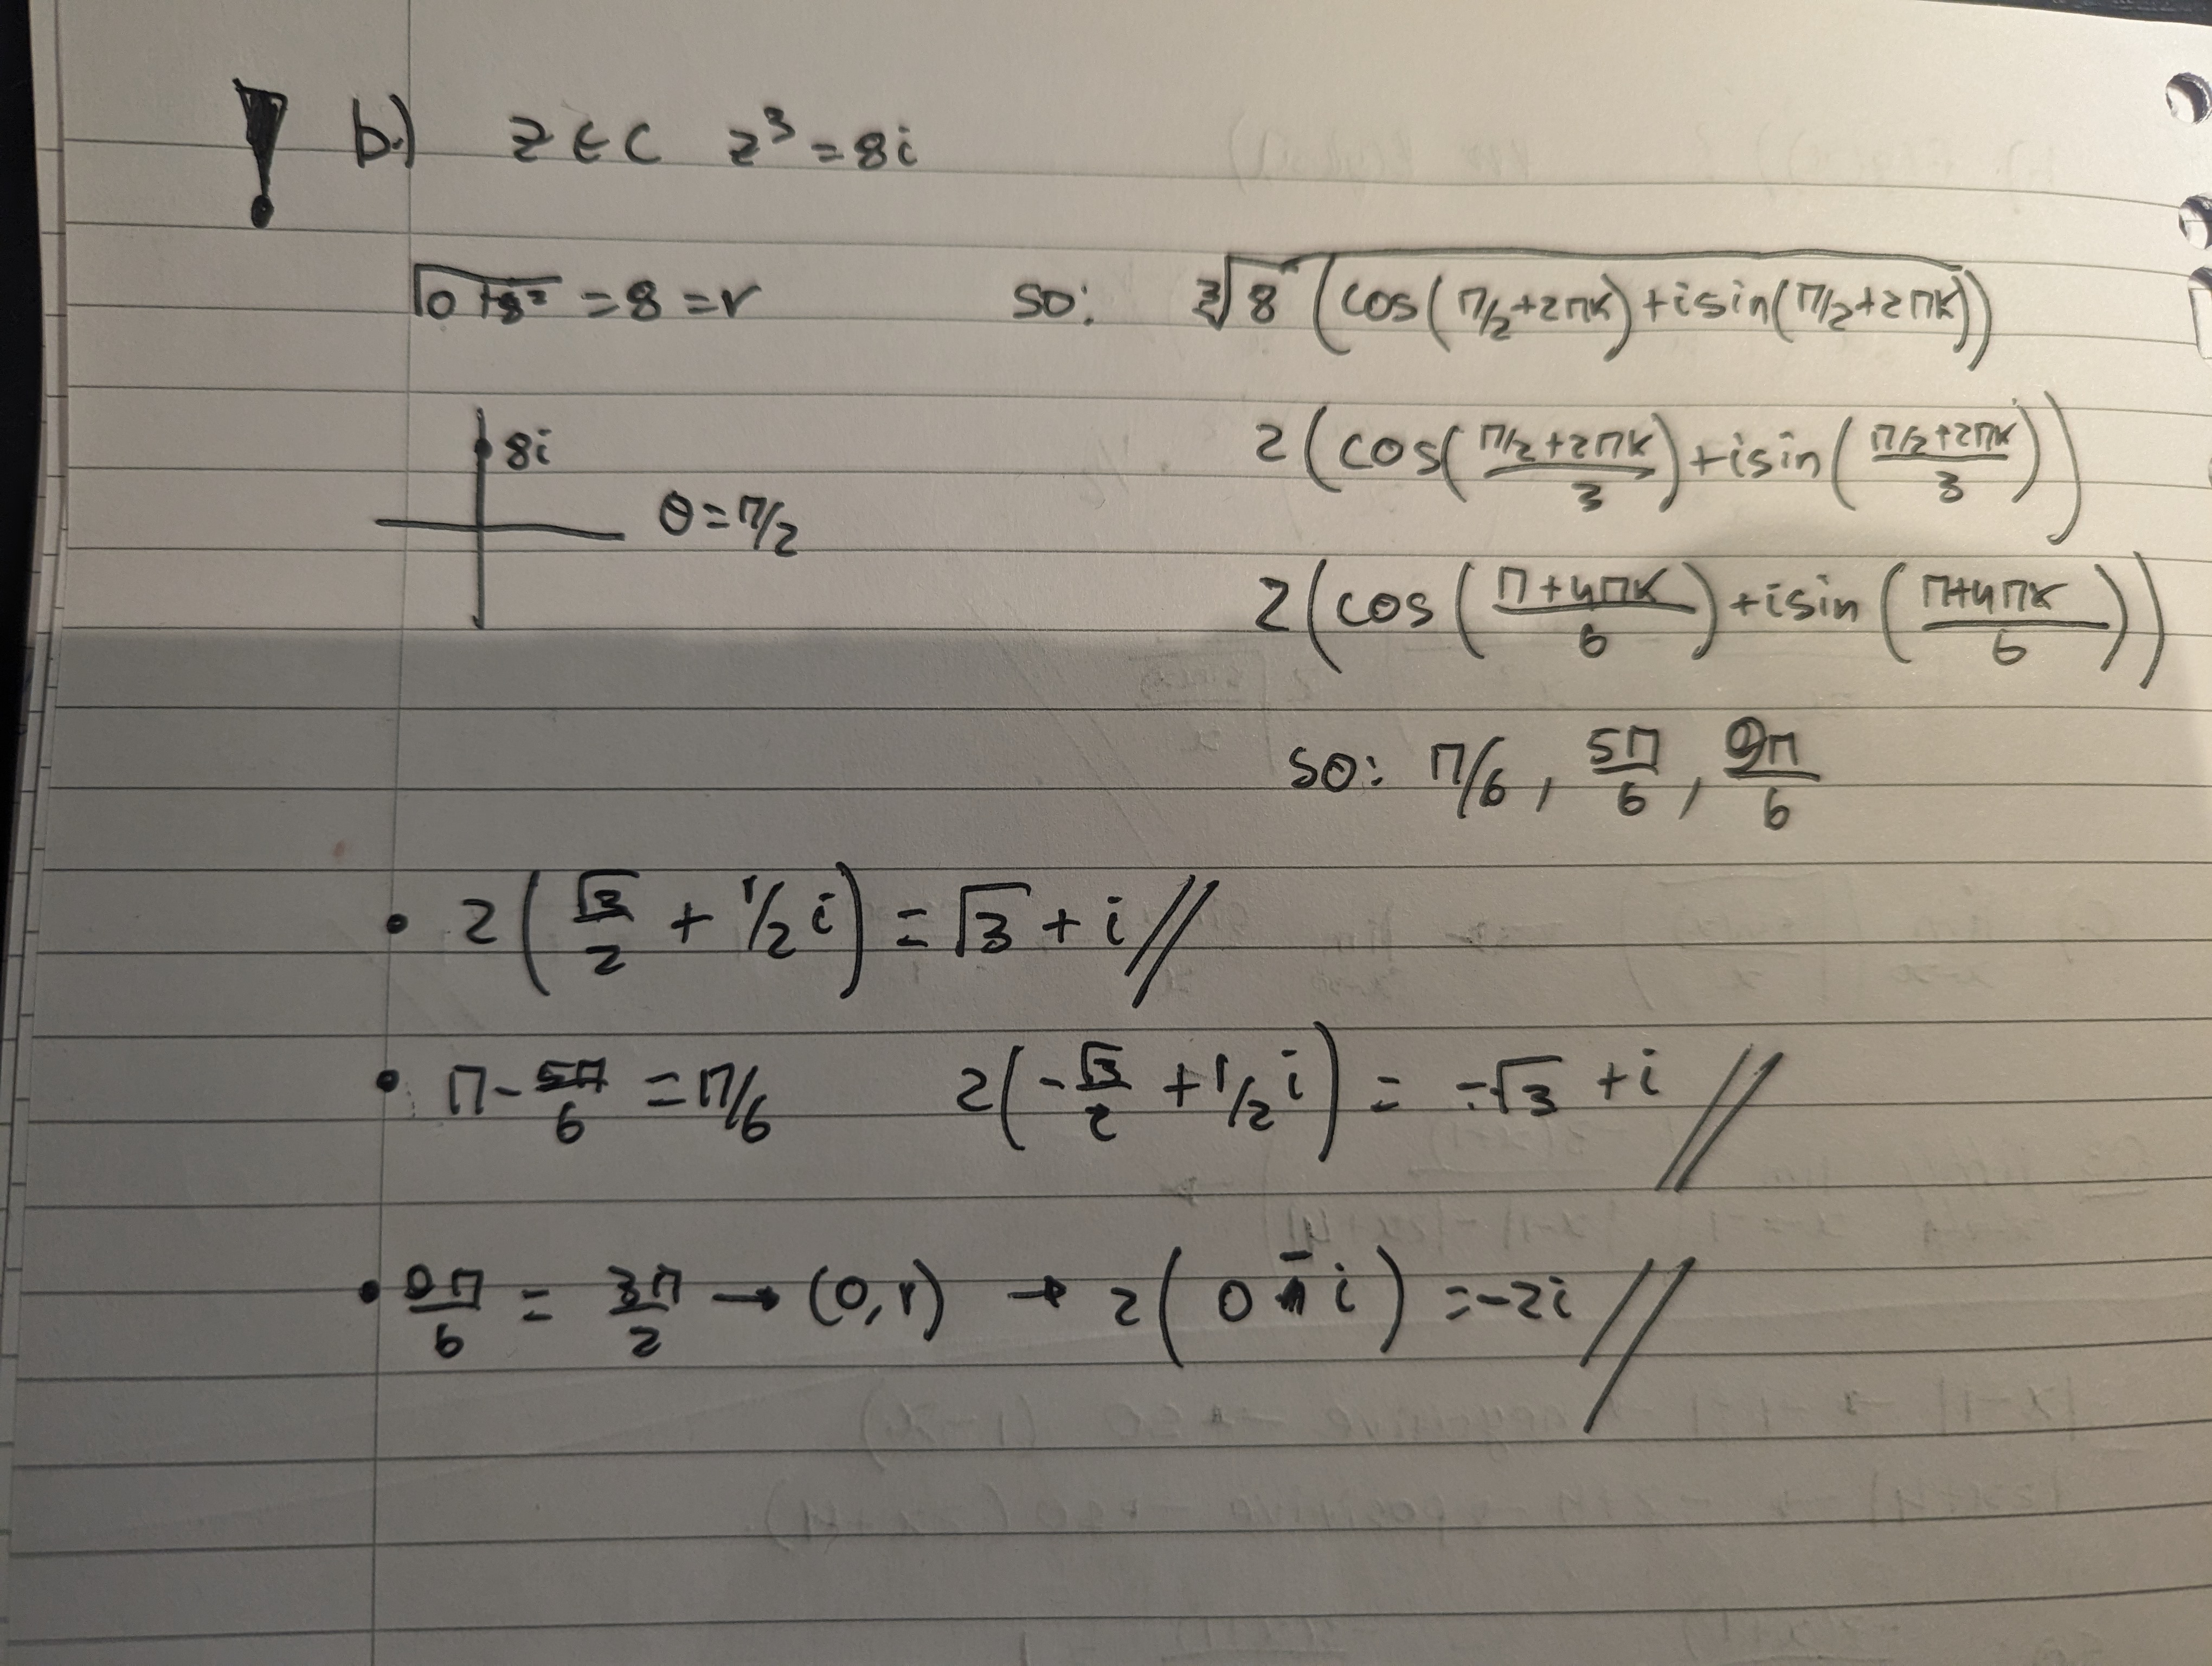 ! b.) z ∈ C z³ = 8i
√(0+8²) = 8 = r so: ∛(8(cos(π/2+2πk)+isin(π/2+2πk)))
8i
2(cos((π/2+2πk)/3)+isin((π/2+2πk)/3))
θ = π/2
2(cos((π+4πk)/6)+isin((π+4πk)/6))
so: π/6, 5π/6, 9π/6
• 2(√3/2 + 1/2 i) = √3 + i //
• π - 5π/6 = π/6 2(-√3/2 + 1/2 i) = -√3 + i //
• 9π/6 = 3π/2 → (0,r) → 2(0 - i) = -2i //